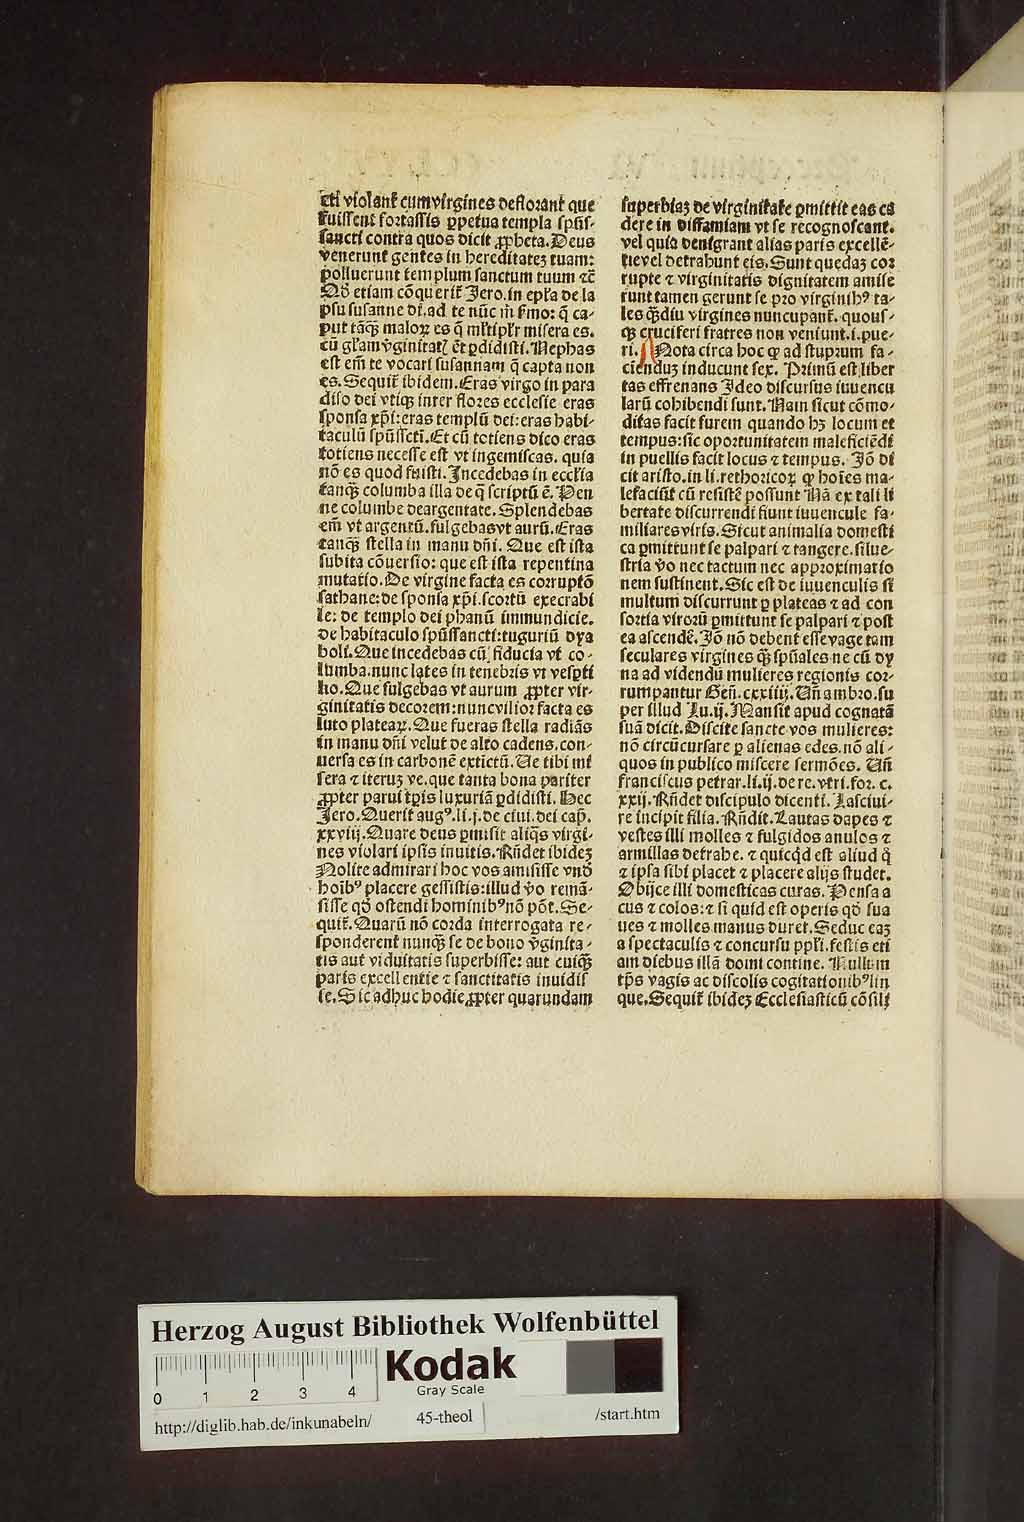 cti violant᷑ cum virgines deflorant᷑ que
fuissent fortassis ꝑpetua templa sp̄us-
sancti contra quos dicit ꝓpheta. Deus
venerunt gentes in hereditateꝫ tuam:
polluerunt templum sanctum tuum ⁊c̄
Qd̕ etiam cōquerit᷑ Jero. in ep̄la de la
psu susanne di. ad te nūc m̄ f̕mo: q̄ ca-
put tāqꝫ maloꝝ es q̄ ml̕tipl̕r misera es.
cū gl̕am v̕ginitatꝭ et ꝑdidisti. Nephas
est em̄ te vocari susannam q̄ capta non
es. Sequit᷑ ibidem. Eras virgo in para
diso dei vtiqꝫ inter flores ecclesie eras
sponsa xp̄i: eras templū dei: eras habi-
taculū sp̄ussctī. Et cū totiens dico eras
totiens necesse est vt ingemiscas. quia
nō es quod fuisti. Incedebas in eccl̕ia
tanqꝫ columba illa de q̄ scriptū ē. Pen
ne columbe deargentate. Splendebas
em̄ vt argentū. fulgebas vt aurū. Eras
tanqꝫ stella in manu dn̄i. Que est ista
subita cōuersio: que est ista repentina
mutatio. De virgine facta es corruptō
sathane: de sponsa xp̄i. scortū execrabi
le: de templo dei phanū immundicie.
de habitaculo sp̄ussancti: tuguriū dya
boli. Que incedebas cū fiducia vt co-
lumba. nunc lates in tenebris vt vesꝑti
lio. Que fulgebas vt aurum ꝓpter vir-
ginitatis decorem: nunc vilior facta es
luto plateaꝝ. Que fueras stella radiās
in manu dn̄i velut de alto cadens. con-
uersa es in carbonē extictū. Ue tibi mi
sera ⁊ iteruꝫ ve. que tanta bona pariter
ꝓpter parui tp̄is luxuriā ꝑdidisti. Hec
Jero. Querit augꝰ. li. j. de ciui. dei cap̄.
xxviij. Quare deus ꝑmisit aliqꝫ virgi-
nes violari ipsis inuitis. Rn̄det ibideꝫ
Nolite admirari hoc vos amisisse vnd̕
hoibꝰ placere gessistis: illud v̕o remā-
sisse qd̕ ostendi hominibꝰ nō pōt. Se-
quit᷑. Quarū nō corda interrogata re-
sponderent nunqꝫ se de bono v̕ginita-
tis aut viduitatis superbisse: aut cuiqꝫ
paris excellentie ⁊ sanctitatis inuidis
se. Sic adhuc hodie ꝓpter quarundam
superbiaꝫ de virginitate ꝑmittit eas ca
dere in diffamiam vt se recognoscant.
vel quia denigrant alias paris excellē-
tie vel detrahunt eis. Sunt quedaꝫ cor
rupte ⁊ virginitatis dignitatem amise
runt tamen gerunt se pro virginibꝰ ta-
les qꝫdiu virgines nuncupant᷑. quous-
qꝫ cruciferi fratres non veniunt. i. pue-
ri. Nota circa hoc ꝙ ad stuprum fa-
ciendꝫ inducunt sex. Primū est liber
tas effrenans Ideo discursus iuuencu
larū cohibendi sunt. Nam sicut cōmo-
ditas facit furem quando hꝫ locum et
tempus: sic oportunitatem maleficiēdi
in puellis facit locus ⁊ tempus. Jō di
cit aristo. in li. rethoricoꝝ ꝙ hoīes ma-
lefaciūt cū resistē possunt Nā ex tali li
bertate discurrendi fiunt iuuencule fa-
miliares viris. Sicut animalia domesti
ca ꝑmittunt se palpari ⁊ tangere. silue-
stria v̕o nec tactum nec approximatio
nem sustinent. Sic est de iuuenculis si
multum discurrunt ꝑ plateas ⁊ ad con
sortia virorū ꝑmittunt se palpari ⁊ post
ea ascendē. Jō nō debent esse vage tam
seculares virgines qꝫ sp̄uales ne cū dy
na ad videndū mulieres regionis cor-
rumpantur Gen̄. cxxiiij. Un̄ ambro. su
per illud Lu. ij. Mansit apud cognatā
suā dicit. Discite sancte vos mulieres:
nō circūcursare ꝑ alienas edes. nō ali-
quos in publico miscere sermōes. Un̄
franciscus petrar. li. ij. de re. vtri. for. c.
xxij. Rn̄det discipulo dicenti. Lasciui-
re incipit filia. Rn̄dit. Lautas dapes ⁊
vestes illi molles ⁊ fulgidos anulos ⁊
armillas detrahe. ⁊ quicqd̕ est aliud q̕
⁊ ipsa sibi placet ⁊ placere alijs studet.
Obijce illi domesticas curas. Pensa a
cus ⁊ colos: ⁊ si quid est operis qd̕ sua
ues ⁊ molles manus duret. Seduc eaꝫ
a spectaculis ⁊ concursu ppl̕i. festis eti
am diebus illā domi contine. Nullum
tp̄s vagis ac discolis cogitationibꝰ lin
que. Sequit᷑ ibideꝫ Ecclesiasticū cōsili
Herzog August Bibliothek Wolfenbüttel
0 1 2 3 4
Kodak
Gray Scale
http://diglib.hab.de/inkunabeln/ 45-theol /start.htm